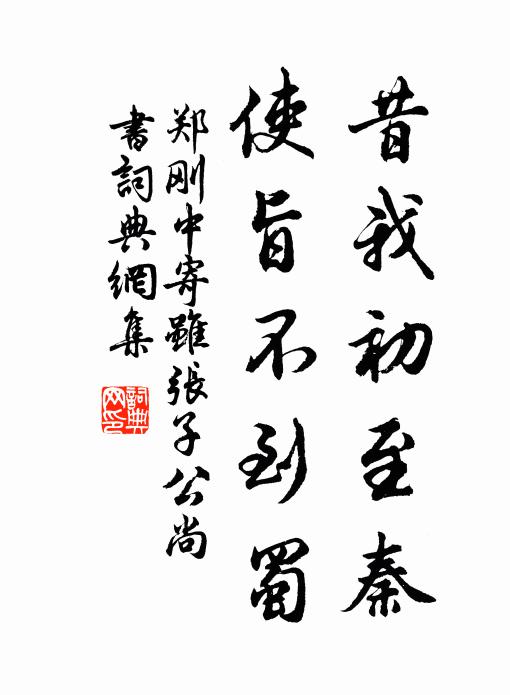 昔我初至秦
使旨不到蜀
郑刚中寄雖張子公尚
書詞典網集
詞典
网印